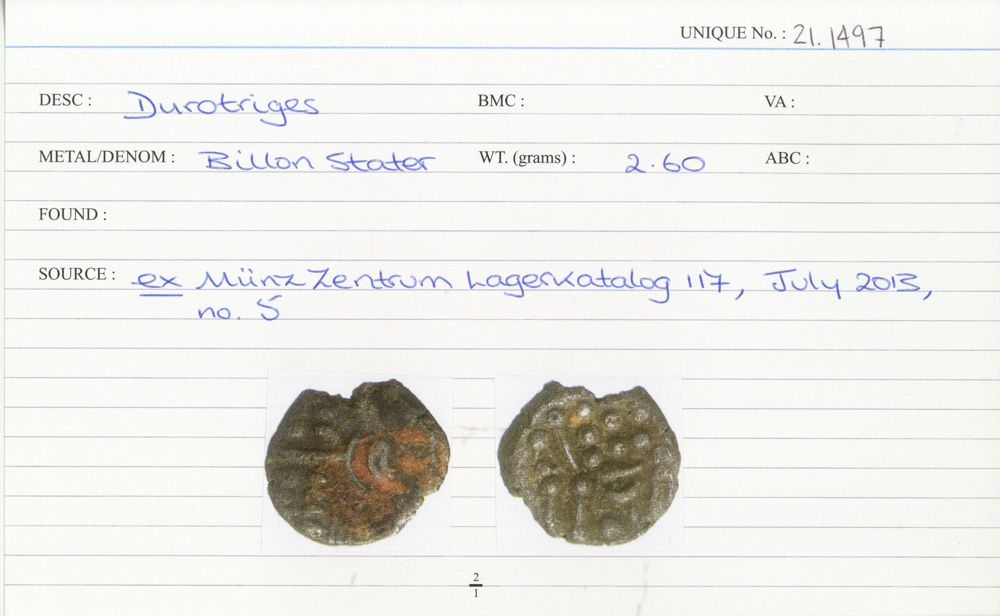 UNIQUE No. : 21.1497
DESC : Durotriges BMC : VA :
METAL/DENOM : Billon Stater WT. (grams) : 2.60 ABC :
FOUND :
SOURCE : ex Münz Zentrum Lagerkatalog 117, July 2013,
no. 5
2
1